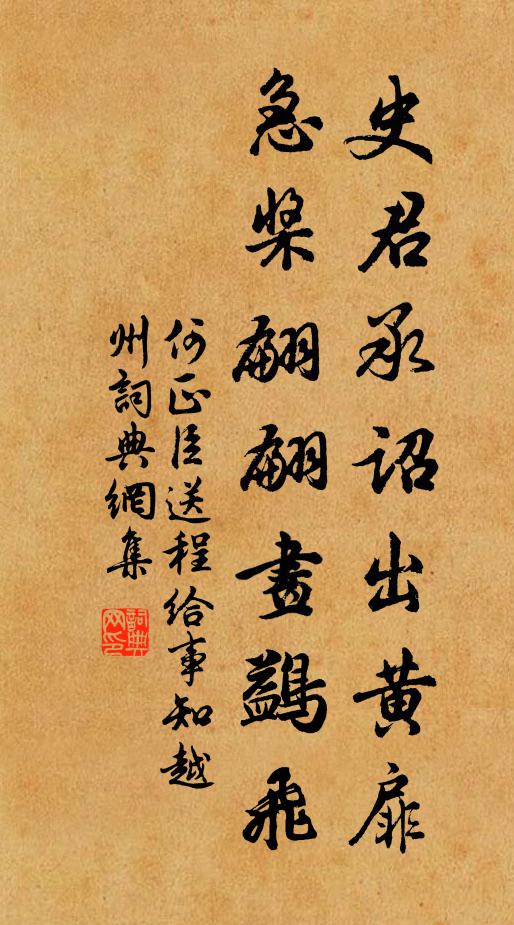 史君承詔出黄扉
急槳翩翩畫鷁飛
何正臣送程給事知越
州詞典網集
詞典
网印